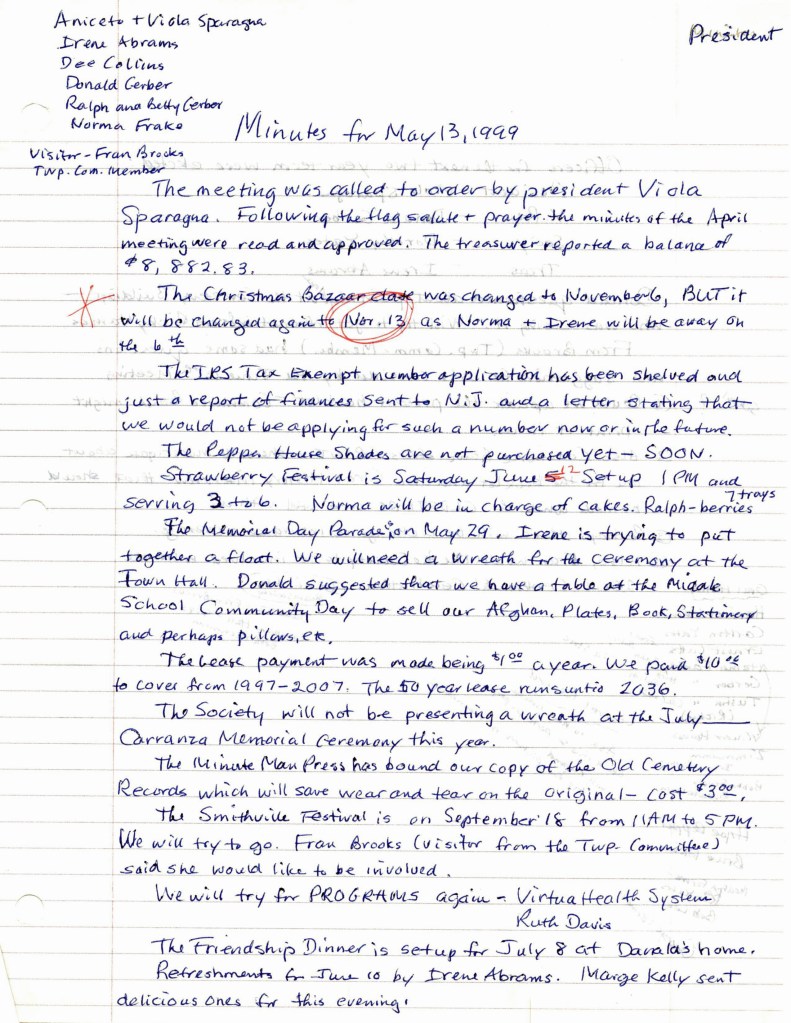 Aniceto + Viola Sparagna
President
Irene Abrams
Dee Collins
Donald Gerber
Ralph and Betty Gerber
Norma Frake
Minutes for May 13, 1999
Visitor - Fran Brooks
Twp. Com. Member
The meeting was called to order by president Viola
Sparagna. Following the flag salute + prayer. the minutes of the April
meeting were read and approved. The treasurer reported a balance of
$8,882.83.
The Christmas Bazaar date was changed to November 6, BUT it
will be changed again to Nov. 13 as Norma + Irene will be away on
the 6th
The IRS Tax Exempt number application has been shelved and
just a report of finances sent to N.J. and a letter stating that
we would not be applying for such a number now or in the future.
The Peppa House Shades are not purchased yet - SOON.
Strawberry Festival is Saturday June 5 12 Set up 1 PM and
7 trays
serving 3 to 6. Norma will be in charge of cakes. Ralph-berries
The Memorial Day Parade is on May 29. Irene is trying to put
together a float. We will need a wreath for the ceremony at the
Town Hall. Donald suggested that we have a table at the Middle
School Community Day to sell our Afghan, Plates, Book, Stationery
and perhaps pillows, etc.
The Lease payment was made being $1.00 a year. We paid $10.00
to cover from 1997-2007. The 50 year lease runs until 2036.
The Society will not be presenting a wreath at the July
Carranza Memorial Ceremony this year.
The Minute Man Press has bound our copy of the Old Cemetery
Records which will save wear and tear on the original - cost $3.00.
The Smithville Festival is on September 18 from 11 AM to 5 PM.
We will try to go. Fran Brooks (visitor from the Twp. Committee)
said she would like to be involved.
We will try for PROGRAMS again - Virtua Health System
Ruth Davis
The Friendship Dinner is set up for July 8 at Donald's home.
Refreshments for June 10 by Irene Abrams. Marge Kelly sent
delicious ones for this evening!